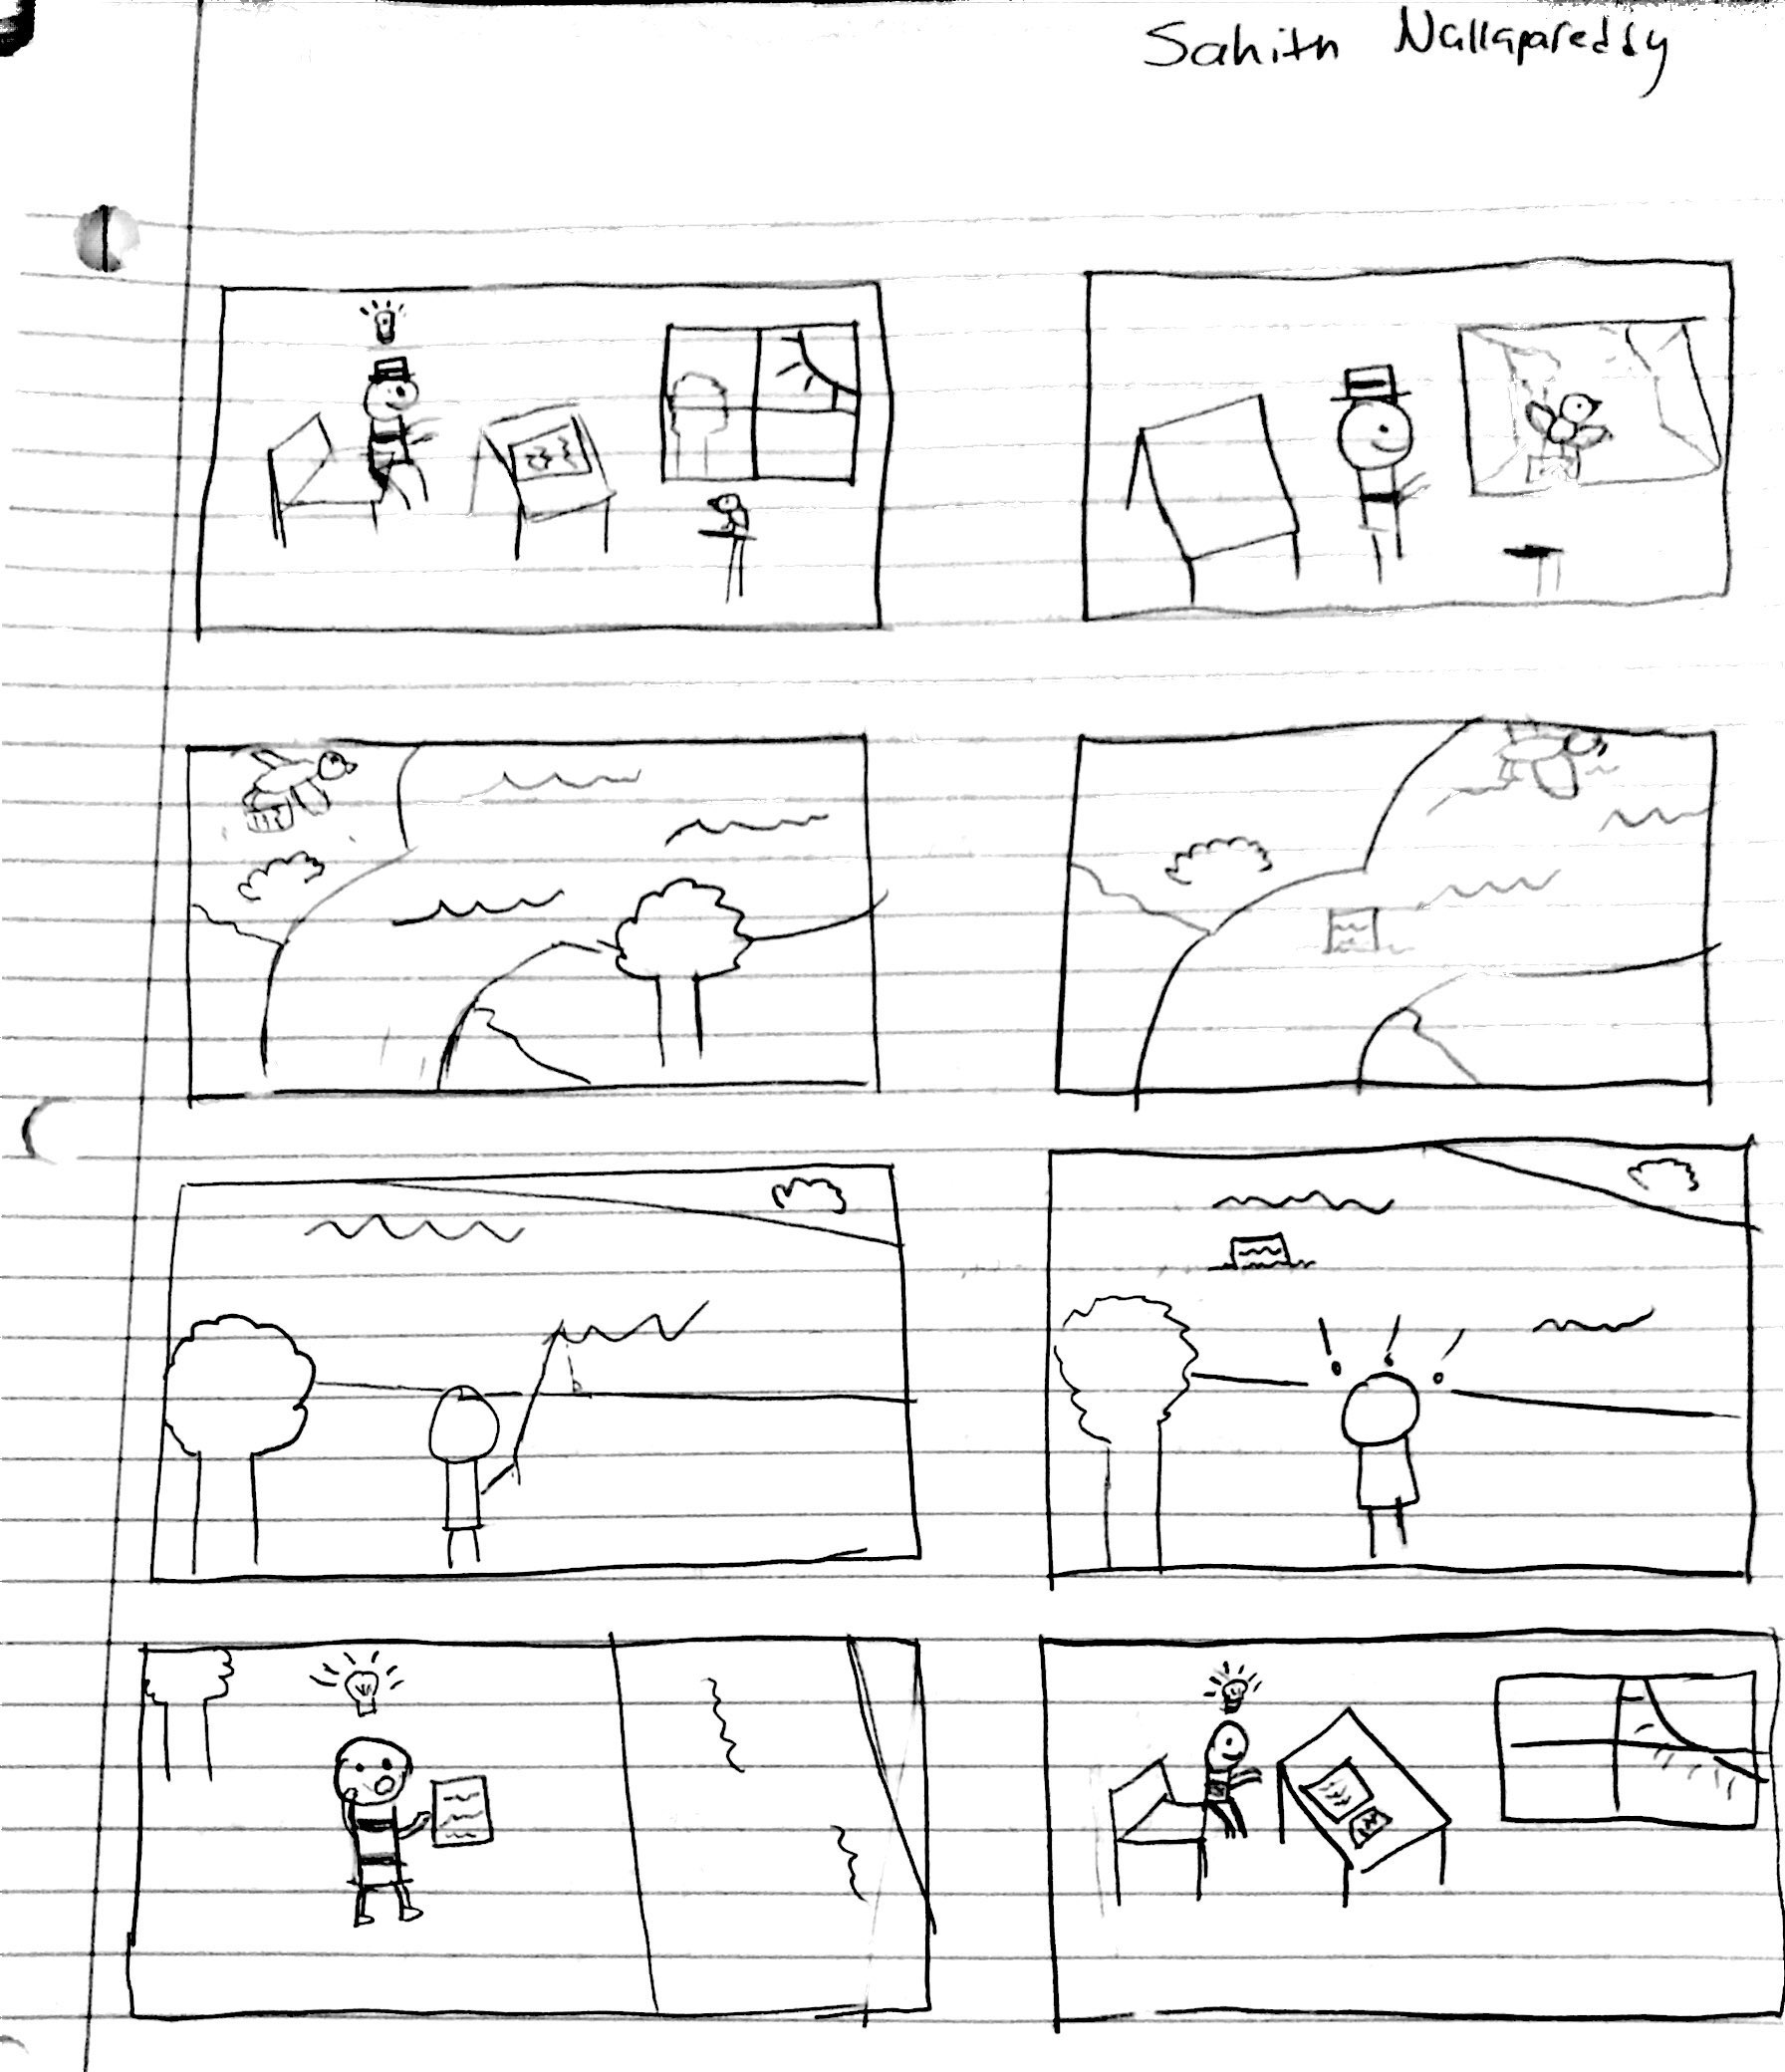 Sahith Nallapareddy